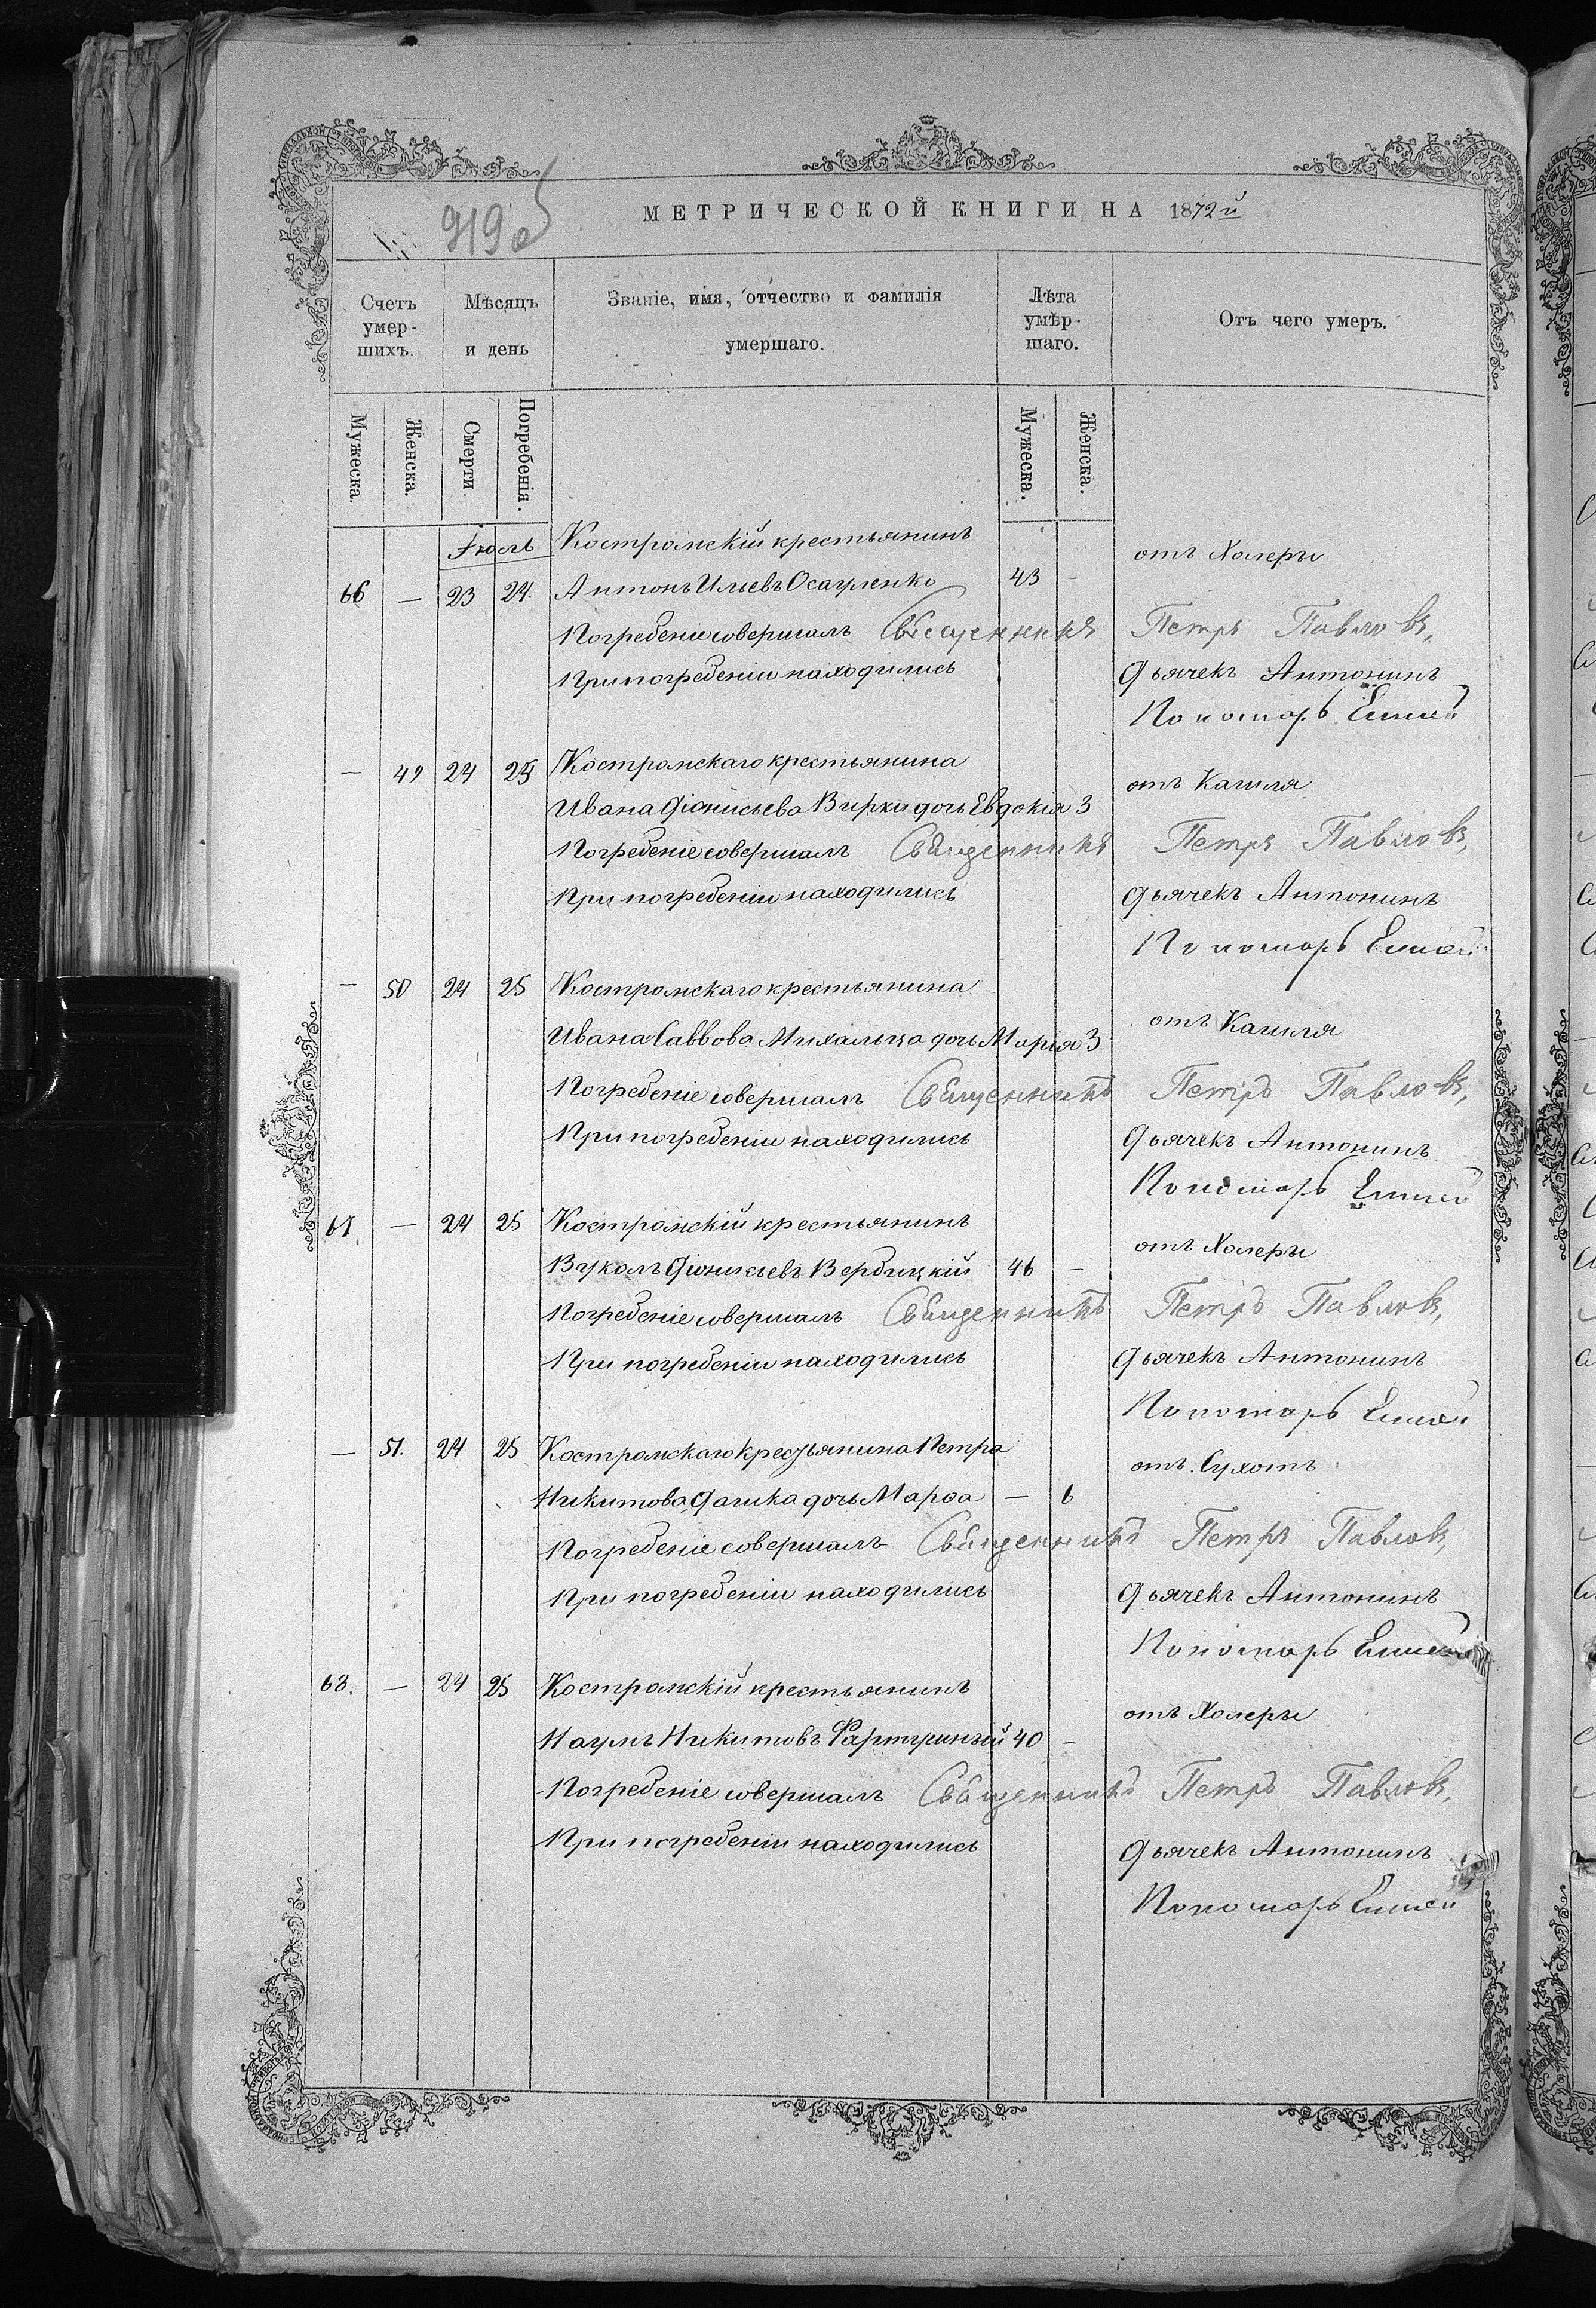 919
МЕТРИЧЕСКОЙ КНИГИ НА 1872й
Счетъ умер-шихъ.
Мѣсяцъ и день
Званіе, имя, отчество и фамилія умершаго.
Лѣта умѣр-шаго.
Отъ чего умеръ.
Мужеска. Женска. Смерти. Погребенія. Мужеска. Женска.
Іюль Костромскій крестьянинъ отъ Холеры
66 — 23 24. Антонъ Ильевъ Осауленко 43 -
Погребеніе совершалъ Священникъ Петръ Павловъ,
При погребеніи находились Дьячекъ Антонинъ
Пономарь
— 49 24 25 Костромскаго крестьянина отъ Кашля
Ивана Діонисьева Вирки дочь Евдокія 3
Погребеніе совершалъ Священникъ Петръ Павловъ,
При погребеніи находились Дьячекъ Антонинъ
Пономарь
— 50 24 25 Костромскаго крестьянина отъ Кашля
Ивана Саввова Михальца дочь Марія 3
Погребеніе совершалъ Священникъ Петръ Павловъ,
При погребеніи находились Дьячекъ Антонинъ
Пономарь
67. — 24 25 Костромскій крестьянинъ отъ Холеры
Вуколъ Діонисьевъ Вербицкій 46 -
Погребеніе совершалъ Священникъ Петръ Павловъ,
При погребеніи находились Дьячекъ Антонинъ
Пономарь
— 51. 24 25 Костромскаго крестьянина Петра отъ Сухотъ
Никитова Дашка дочь Марѳа — 6
Погребеніе совершалъ Священникъ Петръ Павловъ,
При погребеніи находились Дьячекъ Антонинъ
Пономарь
68. — 24 25 Костромскій крестьянинъ отъ Холеры
Наумъ Никитовъ Фартушный 40 -
Погребеніе совершалъ Священникъ Петръ Павловъ,
При погребеніи находились Дьячекъ Антонинъ
Пономарь